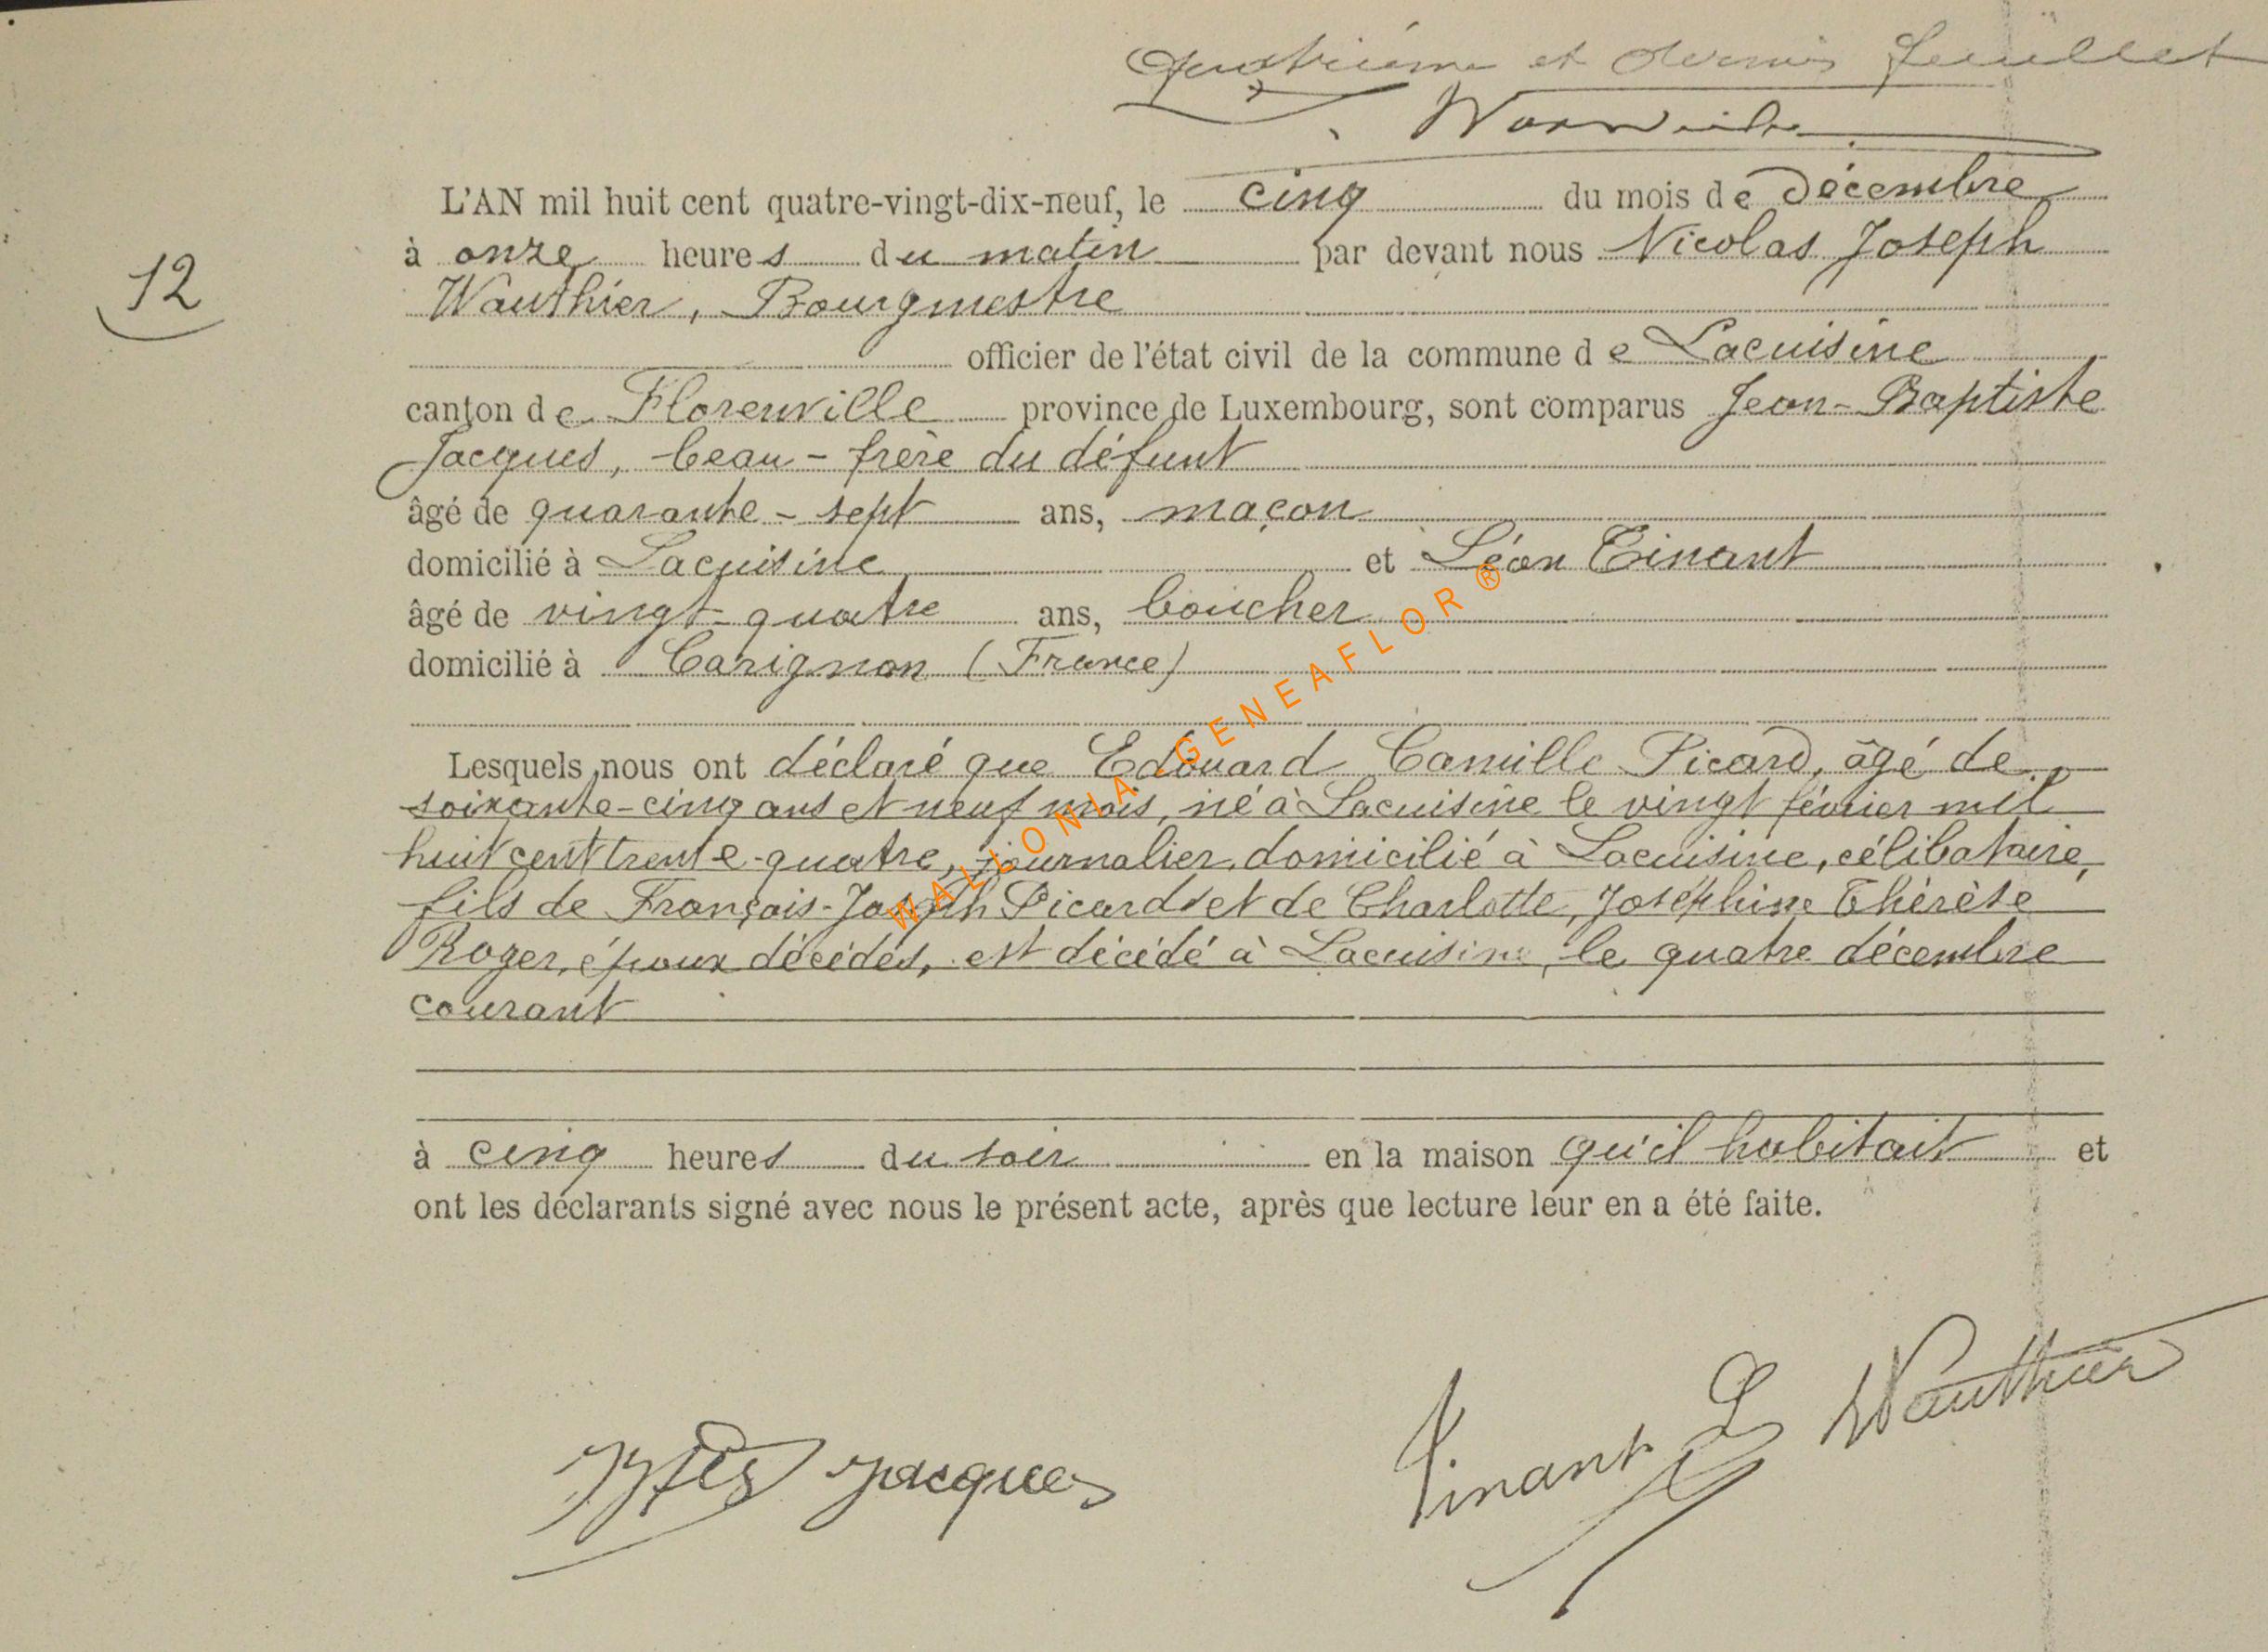 Quatrième et dernier feuillet
12
L'AN mil huit cent quatre-vingt-dix-neuf, le cinq du mois de Décembre
à onze heures du matin par devant nous Nicolas Joseph
Wauthier, Bourgmestre
officier de l'état civil de la commune de Lacuisine
canton de Florenville province de Luxembourg, sont comparus Jean-Baptiste
Jacques, beau-frère du défunt
âgé de quarante-sept ans, maçon
domicilié à Lacuisine et Léon Tinant
âgé de vingt-quatre ans, boucher
domicilié à Carignan (France)
Lesquels nous ont déclaré que Edouard Camille Picard, âgé de
soixante-cinq ans et neuf mois, né à Lacuisine le vingt février mil
huit cent trente-quatre, journalier, domicilié à Lacuisine, célibataire,
fils de François-Joseph Picard et de Charlotte, Joséphine Thérèse
Roger, époux décédés, est décédé à Lacuisine, le quatre décembre
courant
à cinq heures du soir en la maison qu'il habitait et
ont les déclarants signé avec nous le présent acte, après que lecture leur en a été faite.
Jacques
Tinant L
Wauthier
WALLONIA GENEAFLOR ®